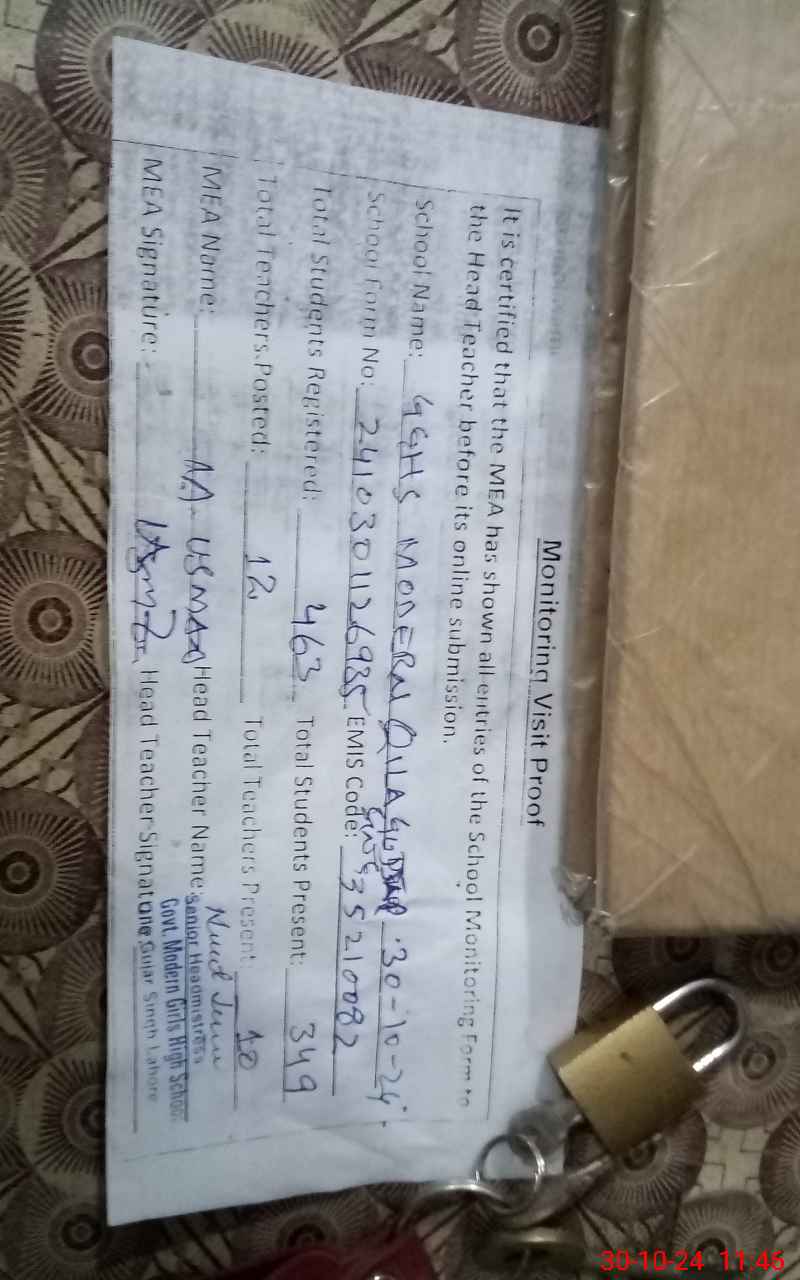 Monitoring Visit Proof
It is certified that the MEA has shown all entries of the School Monitoring Form to
the Head Teacher before its online submission.
School Name: GGHS MODERN QILA 30-10-24
School Form No: 2410301126935 EMIS Code: 35210082
Total Students Registered: 463 Total Students Present: 349
Total Teachers Posted: 12 Total Teachers Present: 10
MEA Name: USMAN Head Teacher Name:
Senior Headmistress
MEA Signature: Head Teacher Signature
Govt. Modern Girls High School
Gujar Singh Lahore
30-10-24 11:46